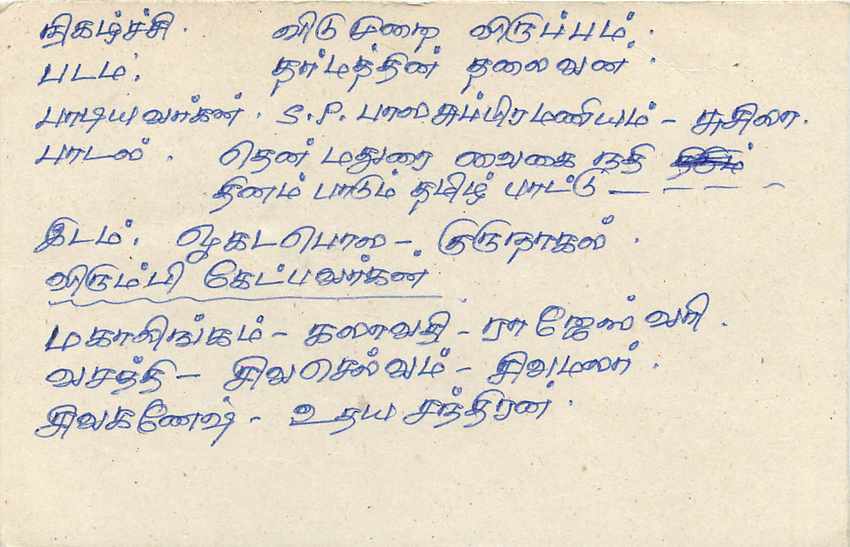 நிகழ்ச்சி. விடுமுறை விருப்பம்.
படம். தர்மத்தின் தலைவன்.
பாடியவர்கள். S.P. பாலசுப்பிரமணியம் - சுசிலா.
பாடல். தென் மதுரை வைகை நதி
தினம் பாடும் தமிழ் பாட்டு - - - -
இடம். ஹெட்டிபொல - குருநாகல்.
விரும்பி கேட்பவர்கள்
மகாலிங்கம் - கலாவதி - ராஜேஸ்வரி.
வசந்தி - சிவசெல்வம் - சிவமலர்.
சிவகணேஷ் - உதயசந்திரன்.